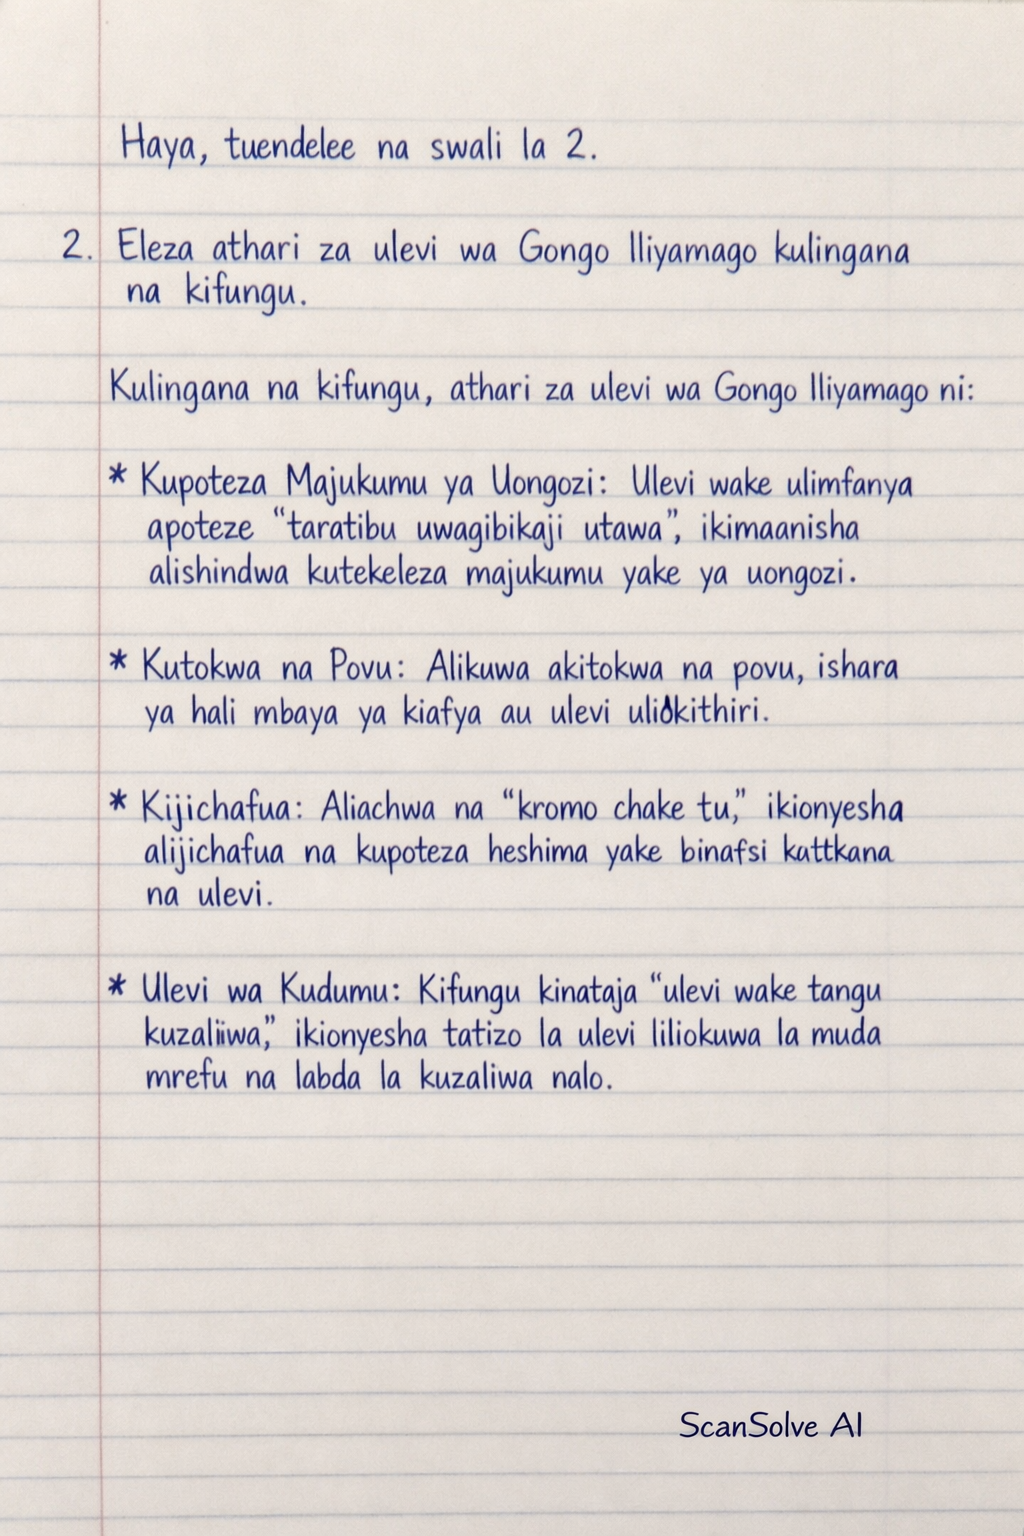 Haya, tuendelee na swali la 2.
2. Eleza athari za ulevi wa Gongo lliyamago kulingana
na kifungu.
Kulingana na kifungu, athari za ulevi wa Gongo lliyamago ni:
* Kupoteza Majukumu ya Uongozi: Ulevi wake ulimfanya
apoteze “taratibu uwagibikaji utawa”, ikimaanisha
alishindwa kutekeleza majukumu yake ya uongozi.
* Kutokwa na Povu: Alikuwa akitokwa na povu, ishara
ya hali mbaya ya kiafya au ulevi uliokithiri.
* Kijichafua: Aliachwa na “kromo chake tu,” ikionyesha
alijichafua na kupoteza heshima yake binafsi kattkana
na ulevi.
* Ulevi wa Kudumu: Kifungu kinataja “ulevi wake tangu
kuzaliiwa,” ikionyesha tatizo la ulevi liliokuwa la muda
mrefu na labda la kuzaliwa nalo.
ScanSolve AI